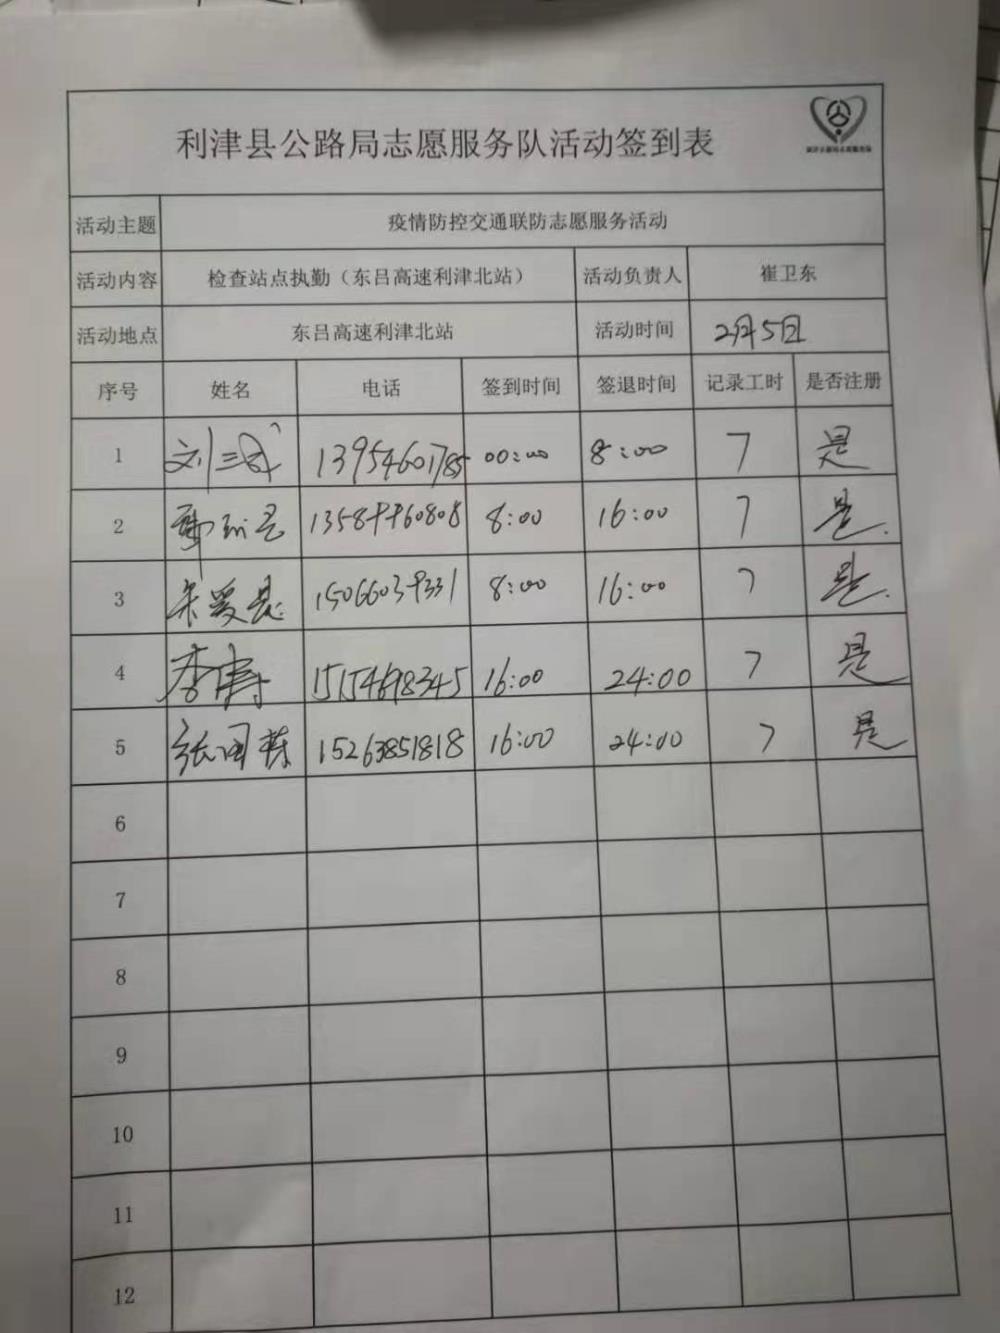 利津县公路局志愿服务队活动签到表
活动主题 疫情防控交通联防志愿服务活动
活动内容 检查站点执勤（东吕高速利津北站） 活动负责人 崔卫东
活动地点 东吕高速利津北站 活动时间 2月5日
序号 姓名 电话 签到时间 签退时间 记录工时 是否注册
1 刘三成 13954601785 00:00 8:00 7 是
2 8:00 16:00 7 是.
3 8:00 16:00 7 是.
4 李涛 15154698345 16:00 24:00 7 是
5 张国栋 15263851818 16:00 24:00 7 是
6
7
8
9
10
11
12